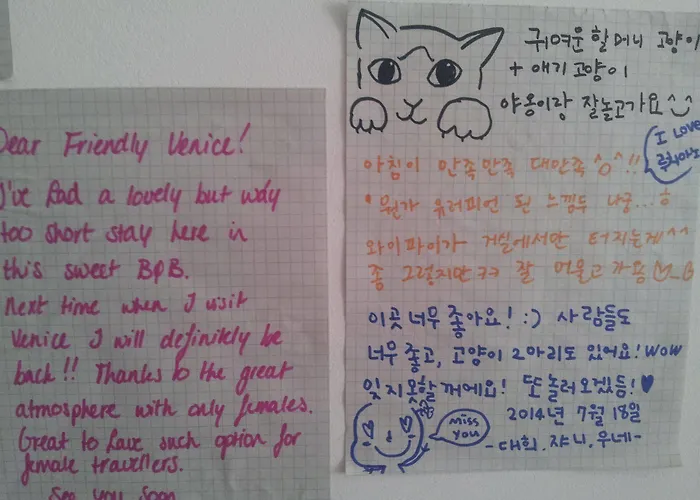 Dear Friendly Venice!
I've had a lovely but way
too short stay here in
this sweet B&B.
Next time when I visit
Venice I will definitely be
back!! Thanks to the great
atmosphere with only females.
Great to have such option for
female travellers.
See you soon
귀여운 할머니 고양이
+ 애기고양이
야옹이랑 잘놀고가요^^
I LOVE
루치아노
아침이 만족만족 대만족^o^!!
뭔가 유러피언 된 느낌두 나궁...ㅎ
와이파이가 거실에서만 터지는게^^
좀 그렇지만ㅋㅋ 잘 머물고 가용
이곳 너무 좋아요! :) 사람들도
너무 좋고, 고양이 2마리도 있어요! WOW
잊지못할꺼에요! 또 놀러오겠듬! ♥
MISS
YOU
2014년 7월 18일
-대희.쟈니.우네-